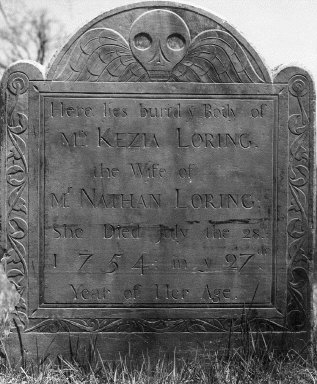 Here lies buried yᵉ Body of
Mʳˢ KEZIA LORING,
the Wife of
Mʳ NATHAN LORING;
She Died July the 28:
1754: in yᵉ 27ᵗʰ
Year of Her Age.